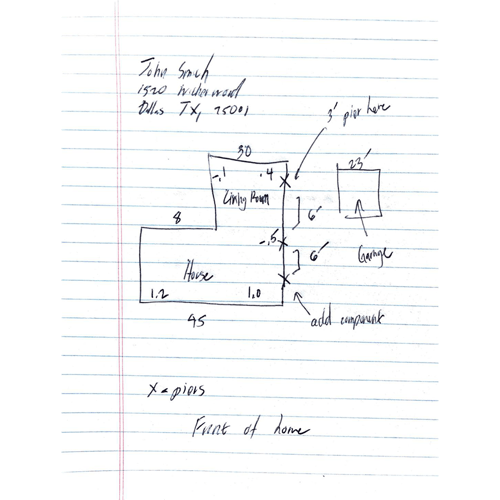 John Smith
1520
Dallas TX, 75001
3' pier here
30
-.1 .4
23'
Living Room
6'
8
-.5
6'
Garage
House
1.2 1.0
add component
45
X = piers
Front of home